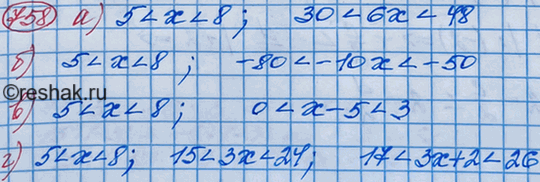 758 а) 5 < x < 8 ; 30 < 6x < 48
б) 5 < x < 8 ; -80 < -10x < -50
©reshak.ru
в) 5 < x < 8 ; 0 < x - 5 < 3
г) 5 < x < 8 ; 15 < 3x < 24 ; 17 < 3x + 2 < 26